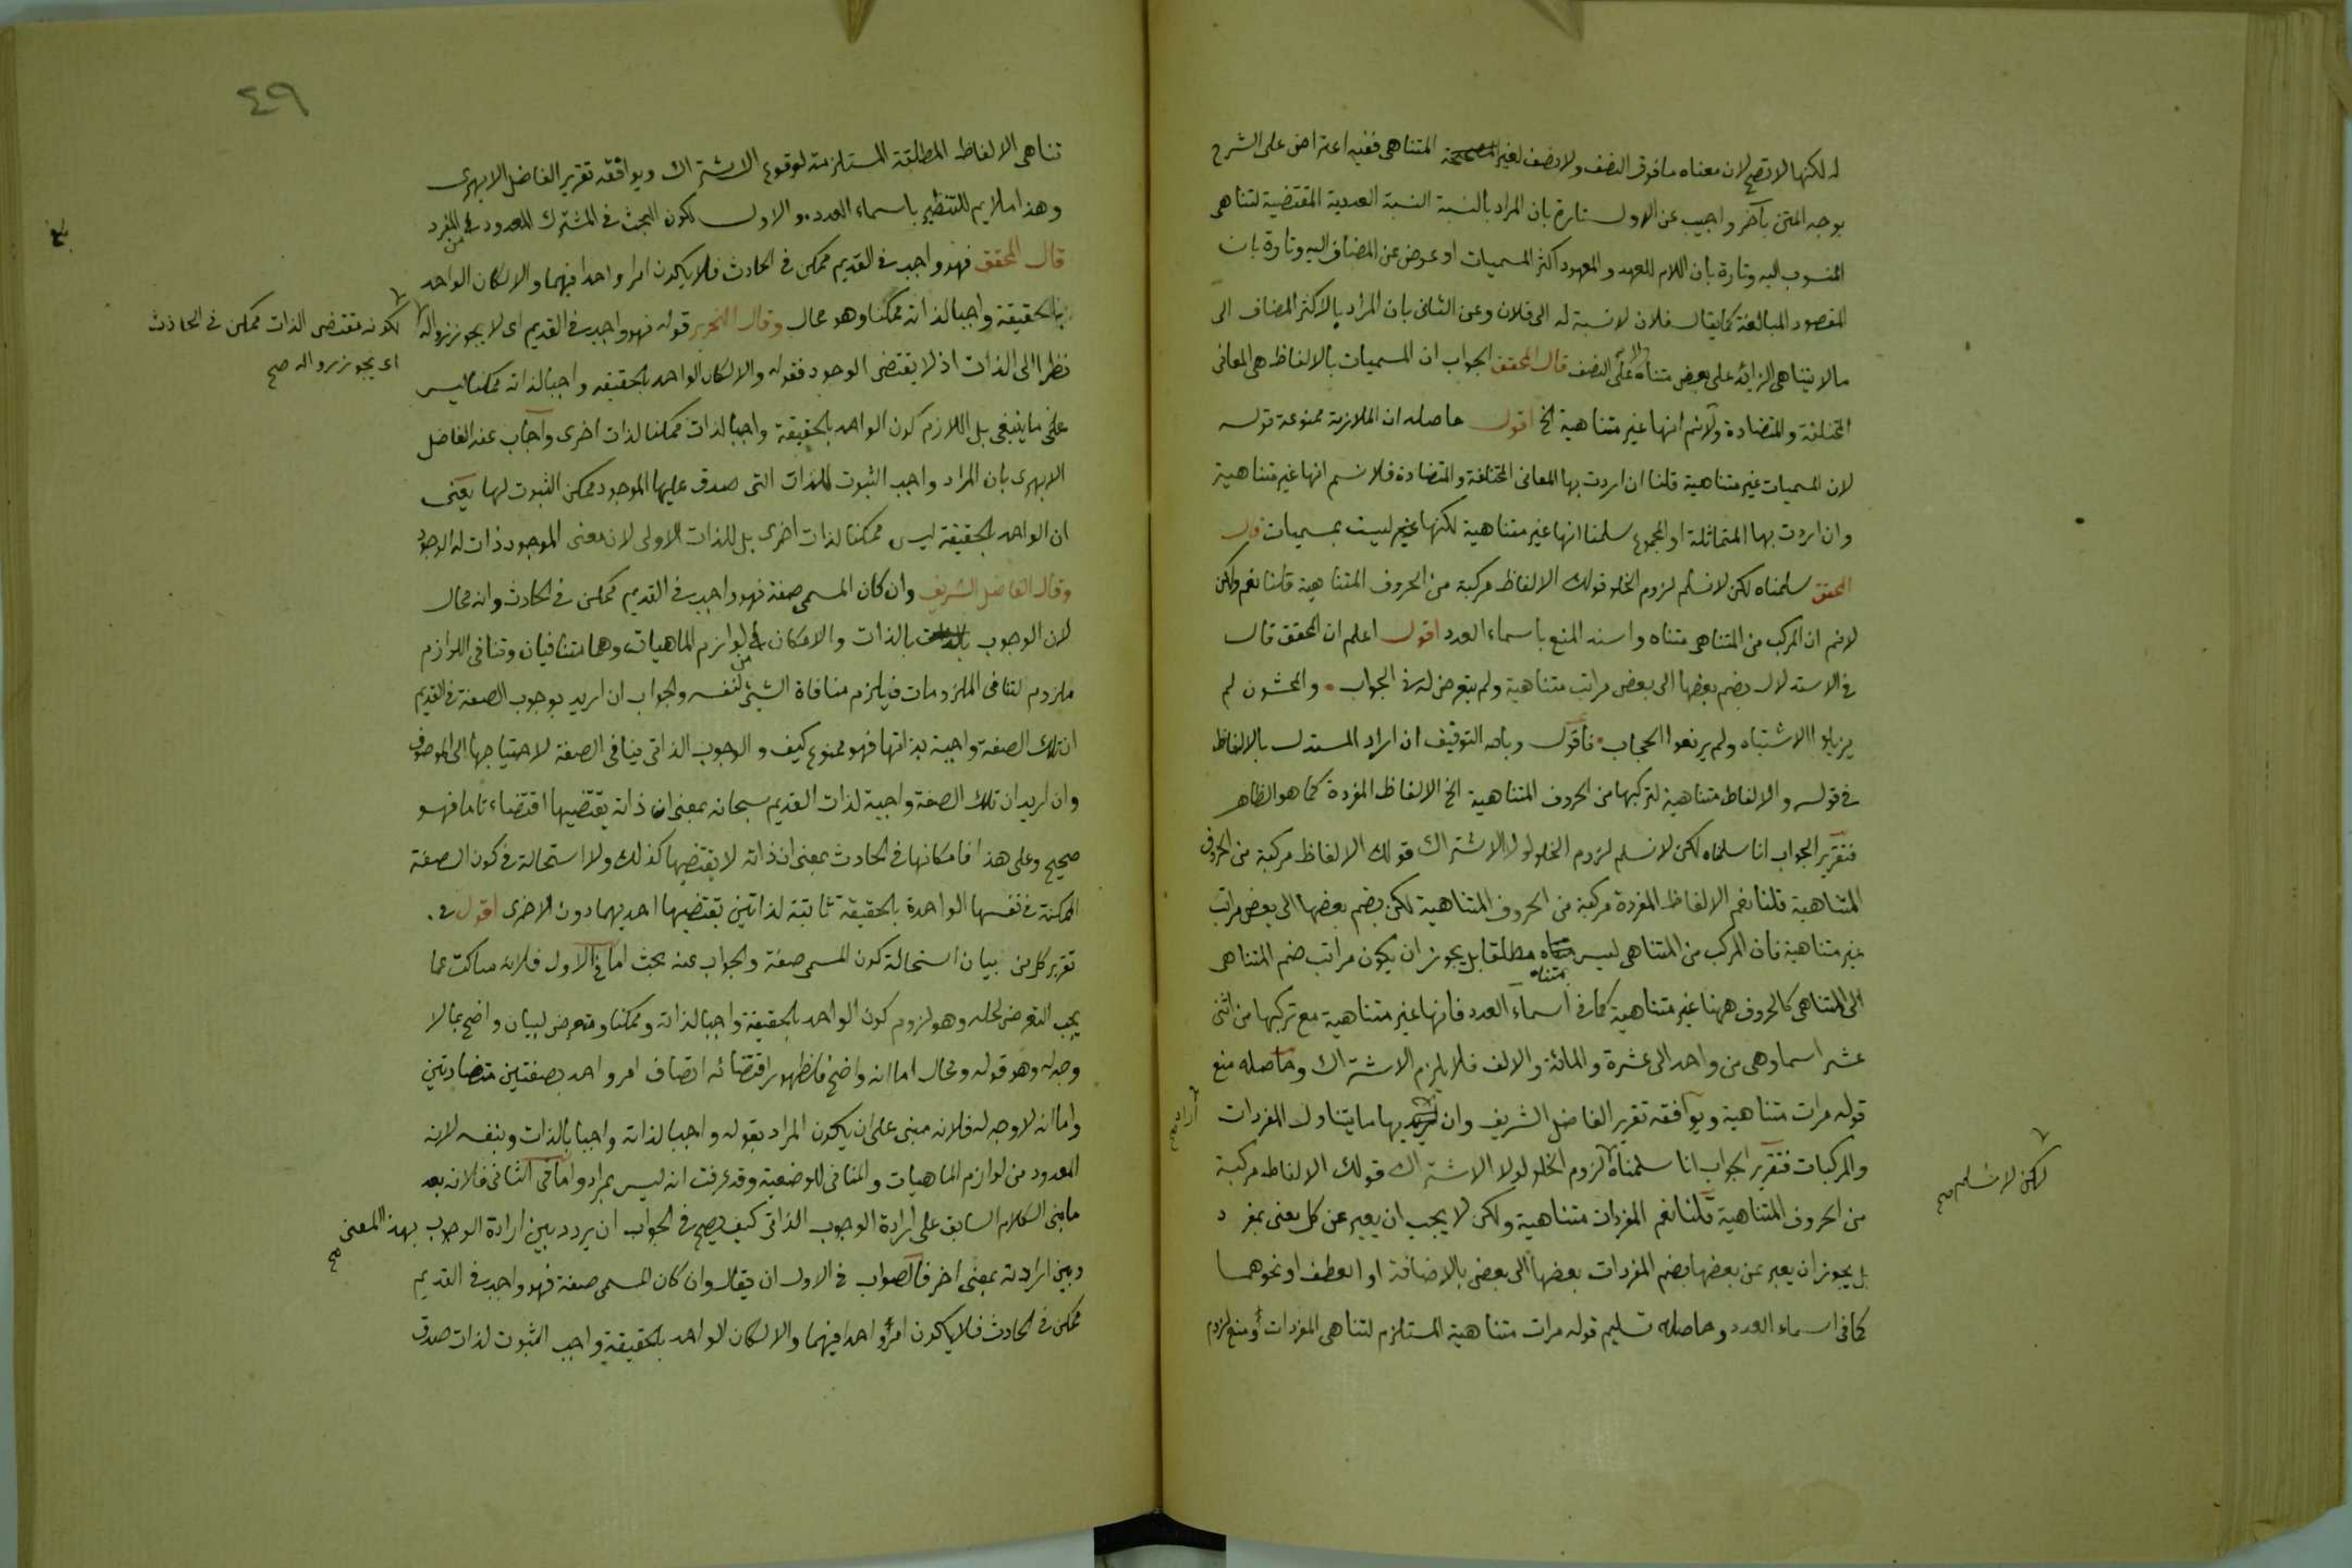 له لكنها لا تصح لان معناه ما فوق النصف ولا نصف لغير المتناهى ففيه اعتراض على الشرح
بوجه المتن بآخر واجيب عن الاول تارة بان المراد بالنسبة النسبة العددية المقتضية لتناهى
المنسوب اليه وتارة بان اللام للعهد والمعهود اكثر المسميات او عوض عن المضاف اليه وتارة بان
المقصود المبالغة كما يقال فلان لا نسبة له الى فلان وعن الثانى بان المراد بالاكثر المضاف الى
ما لا يتناهى الزائد على بعض متناه لا على النصف قال المحقق الجواب ان المسميات بالالفاظ هى المعانى
المختلفة والمتضادة ولا نم انها غير متناهية الخ اقول حاصله ان الملازمة ممنوعة قوله
لان المسميات غير متناهية قلنا ان اردت بها المعانى المختلفة والمتضادة فلا نسلم انها غير متناهية
وان اردت بها المتماثلة او المجموع سلمنا انها غير متناهية لكنها غير ليست بمسميات قال
المحقق سلمناه لكن لا نسلم لزوم الخلو قولك الالفاظ مركبة من الحروف المتناهية قلنا نعم ولكن
لا نم ان المركب من المتناهى متناه واسند المنع باسماء العدد اقول اعلم ان المحقق قال
فى الاستدلال بضم بعضها الى بعض مراتب متناهية ولم يتعرض له فى الجواب والمحشون لم
يزيلوا الاشتباه ولم يرفعوا الحجاب فاقول وبالله التوفيق ان اراد المستدل بالالفاظ
فى قوله والالفاظ متناهية لتركبها من الحروف المتناهية الخ الالفاظ المفردة كما هو الظاهر
فتقرير الجواب انا سلمناه لكن لا نسلم لزوم الخلو لولا الاشتراك قولك الالفاظ مركبة من الحروف
المتناهية قلنا نعم الالفاظ المفردة مركبة من الحروف المتناهية لكن بضم بعضها الى بعض مراتب
غير متناهية فان المركب من المتناهى ليس متناه مطلقا بل يجوز ان يكون مراتب ضم المتناهى
الى المتناهى كالحروف ههنا غير متناهية كما فى اسماء العدد فانها غير متناهية مع تركبها من اثنى
عشر اسما وهى من واحد الى عشرة والمائة والالف فلا يلزم الاشتراك وحاصله منع
قوله مرات متناهية ويوافقه تقرير الفاضل الشريف وان اراد بها ما يتناول المفردات
والمركبات فتقرير الجواب انا سلمناه لزوم الخلو لولا الاشتراك قولك الالفاظ مركبة
لكن لا نسلم صح
من الحروف المتناهية قلنا نعم المفردات متناهية ولكن لا يجب ان يعبر عن كل معنى بمفرد
بل يجوز ان يعبر عن بعضها بضم المفردات بعضها الى بعض بالاضافة او العطف او نحوهما
كما فى اسماء العدد وحاصله تسليم قوله مرات متناهية المستلزم لتناهى المفردات ومنع لزوم
٤٩
تناهى الالفاظ المطلقة المستلزمة لوقوع الاشتراك ويوافقه تقرير الفاضل الابهرى
وهذا ملايم للتنظير باسماء العدد والاول لكون البحث فى المشترك المعدود من المفرد
قال المحقق فهو واجب فى القديم ممكن فى الحادث فلا يكون امرا واحدا فيهما والا لكان الواحد
بالحقيقة واجبا لذاته ممكنا وهو محال وقال النحرير قوله فهو واجب فى القديم اى لا يجوز زواله
لكونه مقتضى الذات ممكن فى الحادث
اى يجوز زواله صح
نظرا الى الذات اذ لا يقتضى الوجود فقوله والا لكان الواحد بالحقيقه واجبا لذاته ممكنا ليس
على ما ينبغى بل اللازم كون الواحد بالحقيقة واجبا لذات ممكنا لذات اخرى واجاب عنه الفاضل
الابهرى بان المراد واجب الثبوت للذات التى صدق عليها الموجود ممكن الثبوت لها يعنى
ان الواحد بالحقيقة ليس ممكنا لذات اخرى بل للذات الاولى لان معنى الموجود ذات له الوجود
وقال الفاضل الشريف وان كان المسمى صفة فهو واجب فى القديم ممكن فى الحادث وانه محال
لان الوجوب بالذات والامكان من لوازم الماهيات وهما متنافيان وتنافى اللوازم
ملزوم لتنافى الملزومات فيلزم منافاة الشئ لنفسه والجواب ان اريد بوجوب الصفة فى القديم
ان تلك الصفة واجبة بذاتها فهو ممنوع كيف والوجوب الذاتى ينافى الصفة لاحتياجها الى الموصوف
وان اريد ان تلك الصفة واجبة لذات القديم سبحانه بمعنى ان ذاته يقتضيها اقتضاء تاما فهو
صحيح وعلى هذا فامكانها فى الحادث بمعنى ان ذاته لا يقتضيها كذلك ولا استحالة فى كون الصفة
الممكنة فى نفسها الواحدة بالحقيقة ثابتة لذاتين يقتضيها احديهما دون الاخرى اقول فى
تقرير كل من بيان استحالة كون المسمى صفة والجواب عنه بحث اما فى الاول فلانه ساكت عما
يجب التعرض لحله وهو لزوم كون الواحد بالحقيقة واجبا لذاته وممكنا ومتعرض لبيان واضح بما لا
وجه له وهو قوله ومحال اما انه واضح فلظهور اقتضائه اتصاف امر واحد بصفتين متضادتين
واما انه لا وجه له فلانه مبنى على ان يكون المراد بقوله واجبا لذاته واجبا بالذات وبنفسه لانه
المعدود من لوازم الماهيات والمنافى للوضعية وقد عرفت انه ليس بمراد واما فى الثانى فلانه بعد
ما بنى الكلام السابق على ارادة الوجوب الذاتى كيف يصح فى الجواب ان يردد بين ارادة الوجوب بهذا المعنى
صح
وبين ارادته بمعنى اخر فالصواب فى الاول ان يقال وان كان المسمى صفة فهو واجب فى القديم
ممكن فى الحادث فلا يكون امرا واحدا فيهما والا لكان الواحد بالحقيقة واجب الثبوت لذات صدق